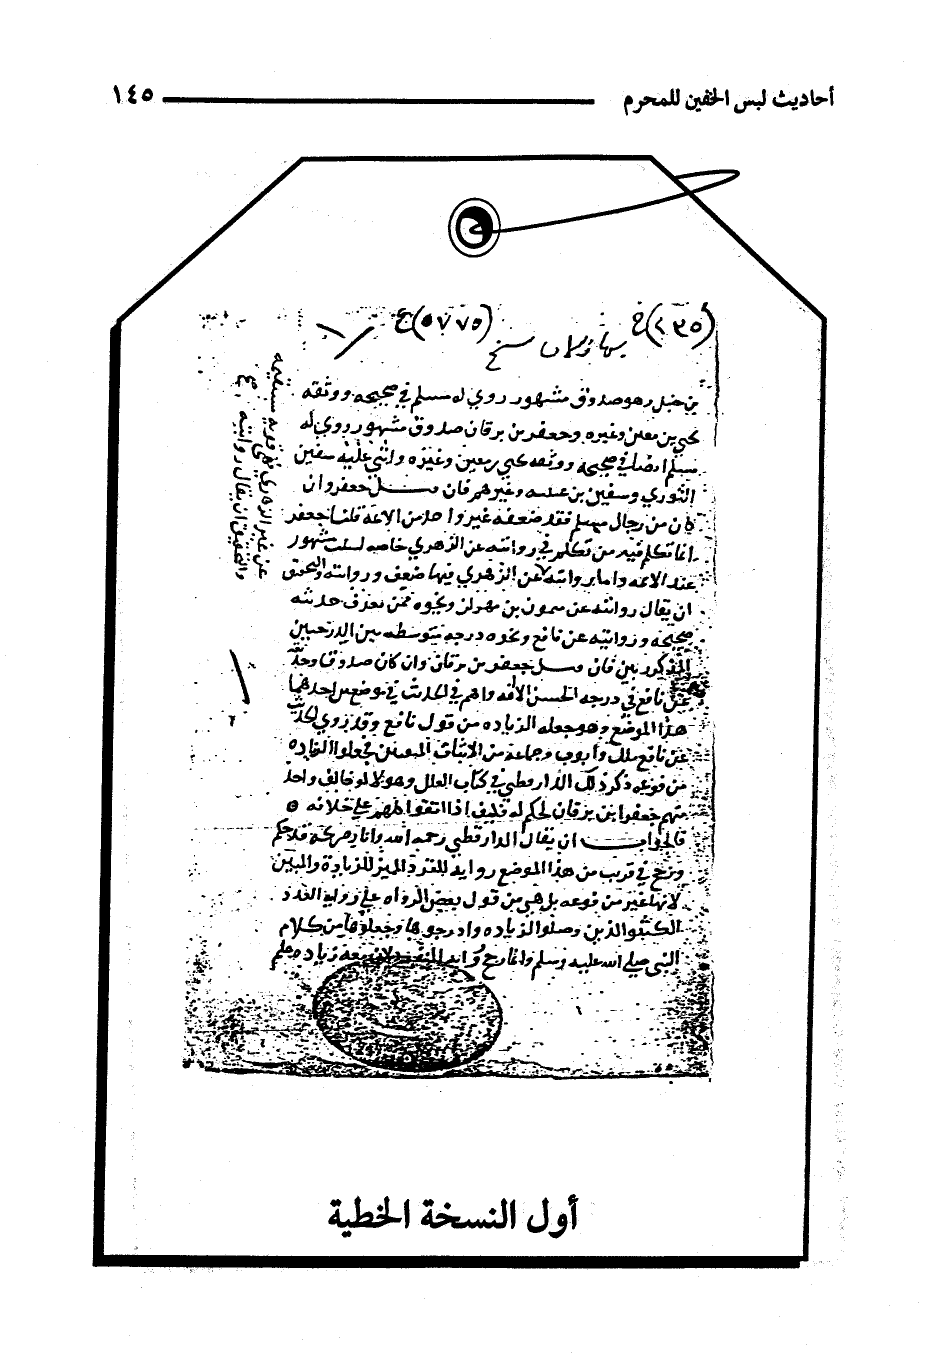 أحاديث لبس الخفين للمحرم ١٤٥
بن حنبل وهو صدوق مشهور روي له مسلم في صحيحه ووثقه
يحيى بن معين وغيره وجعفر بن برقان صدوق مشهور روي له
مسلم ايضا في صحيحه ووثقه يحيى بن معين وغيره واثنى عليه سفين
الثوري وسفين بن عيينه وغيرهم فان قيل جعفر وان
كان من رجال مسلم فقد ضعفه غير واحد من الائمة قلنا جعفر
انما تكلم فيه من تكلم في روايته عن الزهري خاصه ليست مشهور
عند الائمه واما روايته عن الزهري ففيها ضعف وروايته والتحقيق
ان يقال روايته عن ميمون بن مهران ونحوه ممن يعرف حديثه
صحيحه وروايته عن نافع ونحوه درجه متوسطه بين الدرجتين
المذكورتين فان قيل جعفر بن برقان وان كان صدوقا
عن نافع في درجه الحسن الا انه واهم في الحديث في موضعين احدهما
هذا الموضع وهو جعله الزياده من قول نافع وقد روي الحديث
عن نافع ملك وايوب وجماعة من الاثبات فجعلوا الزياده
من قوله ذكر ذلك الدارقطني في كتاب العلل وهولا لو خالف واحد
منهم جعفرا بن برقان لحكم له فكيف اذا اتفقوا كلهم على خلافه
فالجواب ان يقال الدارقطني رحمه الله
في قريب من هذا الموضع
من قوله بل هي من قول بعض الرواه
الذين وصلوا الزياده وادرجوها وجعلوها من كلام
النبي صلى الله عليه وسلم
عن غير الزهري فهي قويه مستقيمه
والتحقيق ان يقال روايته
(٥٧٧٥)
أول النسخة الخطية